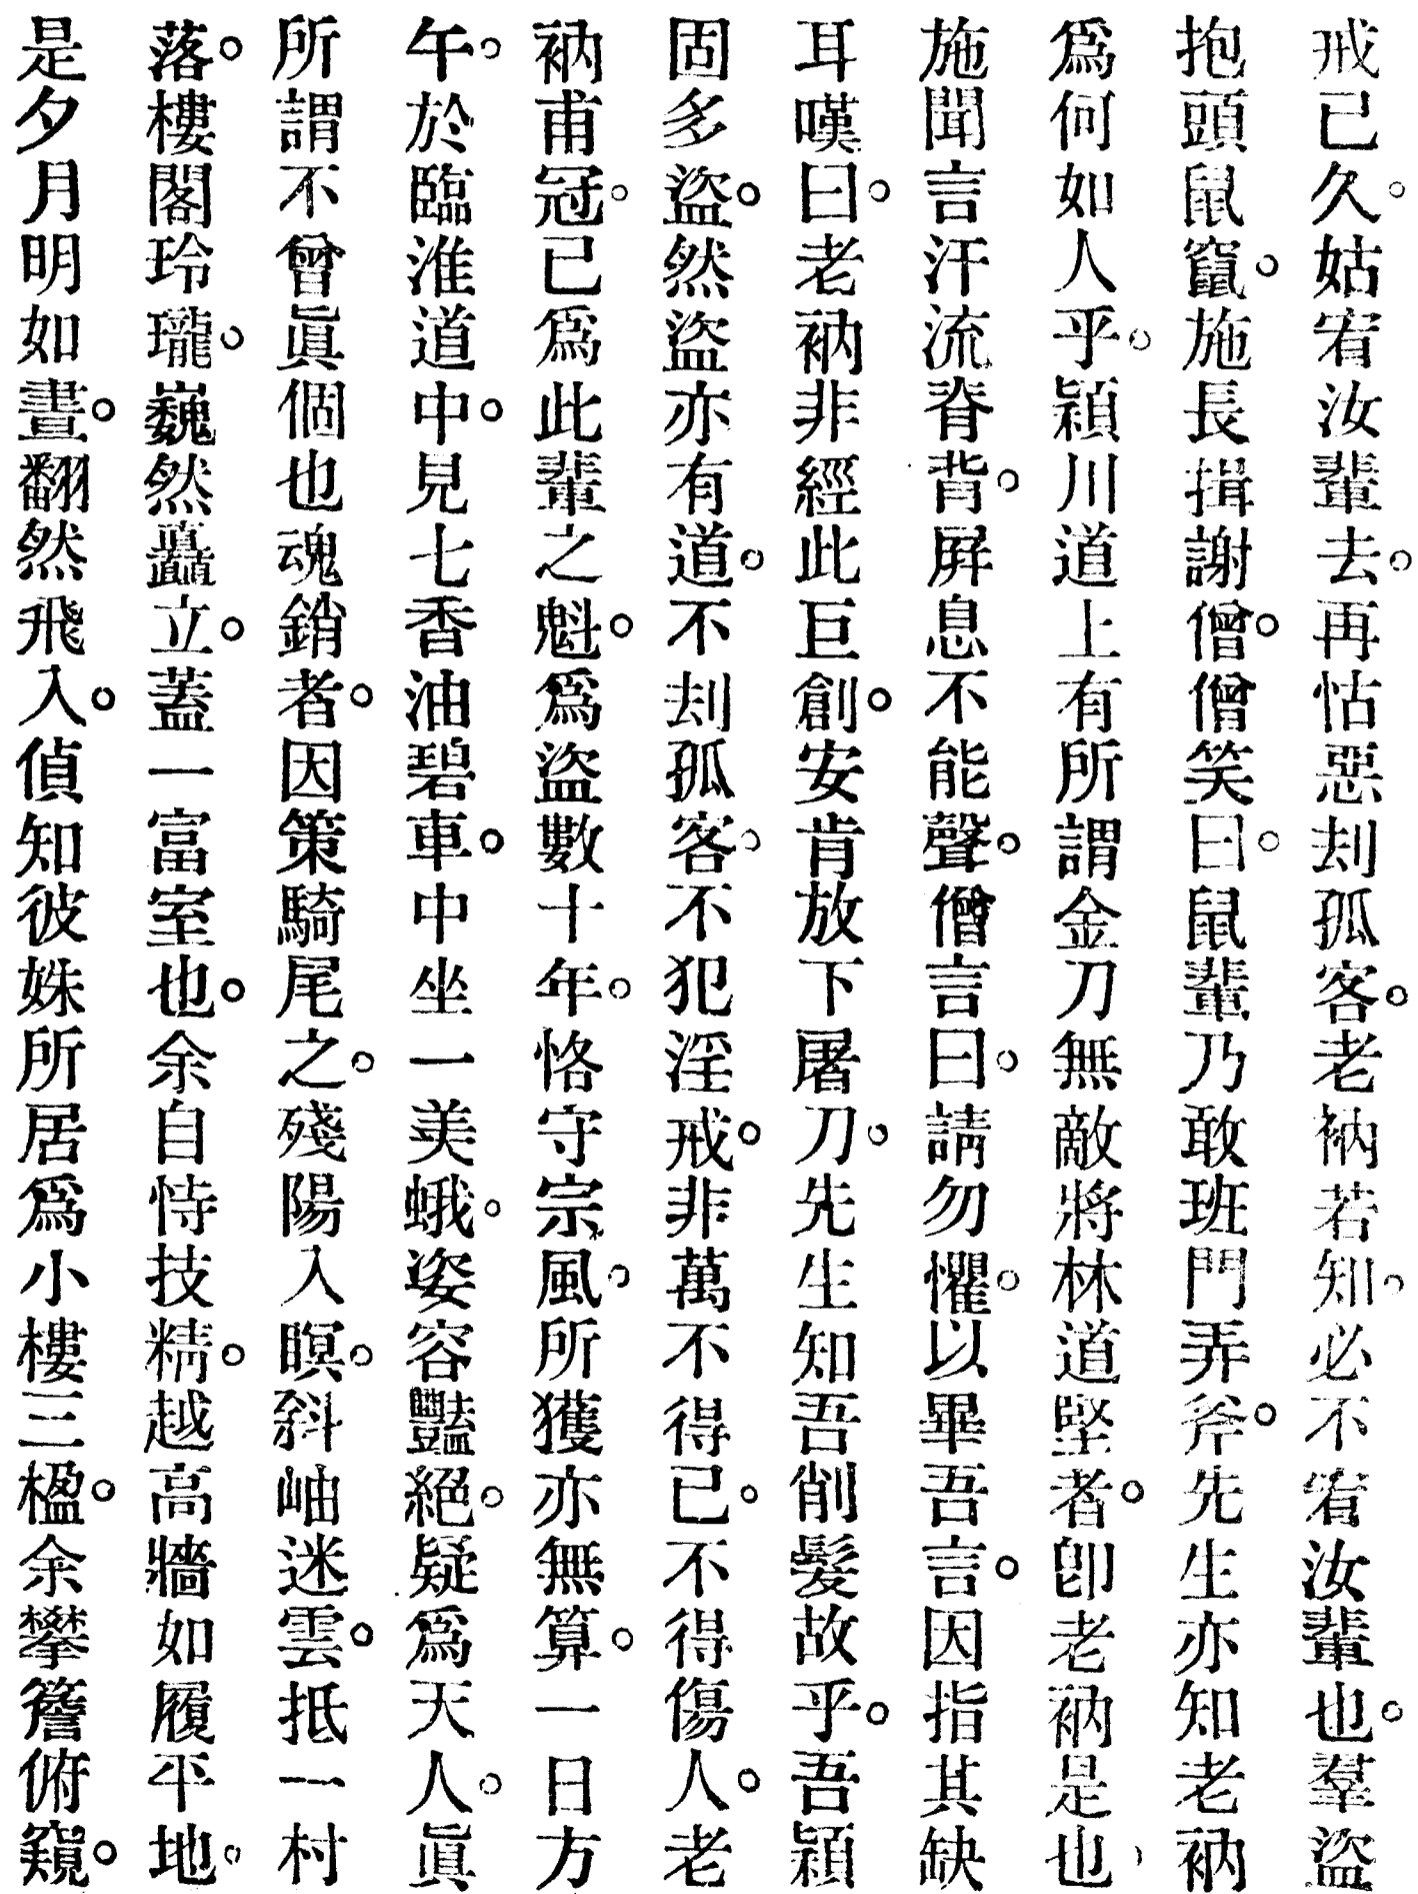 戒已久。姑宥汝輩去。再怙惡刦孤客。老衲若知。必不宥汝輩也。羣盜
抱頭鼠竄。施長揖謝僧。僧笑曰。鼠輩乃敢班門弄斧。先生亦知老衲
爲何如人乎。潁川道上有所謂金刀無敵將林道堅者。卽老衲是也。
施聞言汗流脊背。屛息不能聲。僧言曰。請勿懼。以畢吾言。因指其缺
耳嘆曰。老衲非經此巨創。安肯放下屠刀。先生知吾削髮故乎。吾潁
固多盜。然盜亦有道。不刦孤客。不犯淫戒。非萬不得已。不得傷人。老
衲甫冠。已爲此輩之魁。爲盜數十年。恪守宗風。所獲亦無算。一日方
午。於臨淮道中。見七香油碧車。車中坐一美蛾。姿容豔絕。疑爲天人。眞
所謂不曾眞個也魂銷者。因策騎尾之。殘陽入暝。斜岫迷雲。抵一村
落。樓閣玲瓏。巍然矗立。蓋一富室也。余自恃技精。越高牆如履平地。
是夕月明如晝。翻然飛入。偵知彼姝所居爲小樓三楹。余攀簷俯窺。